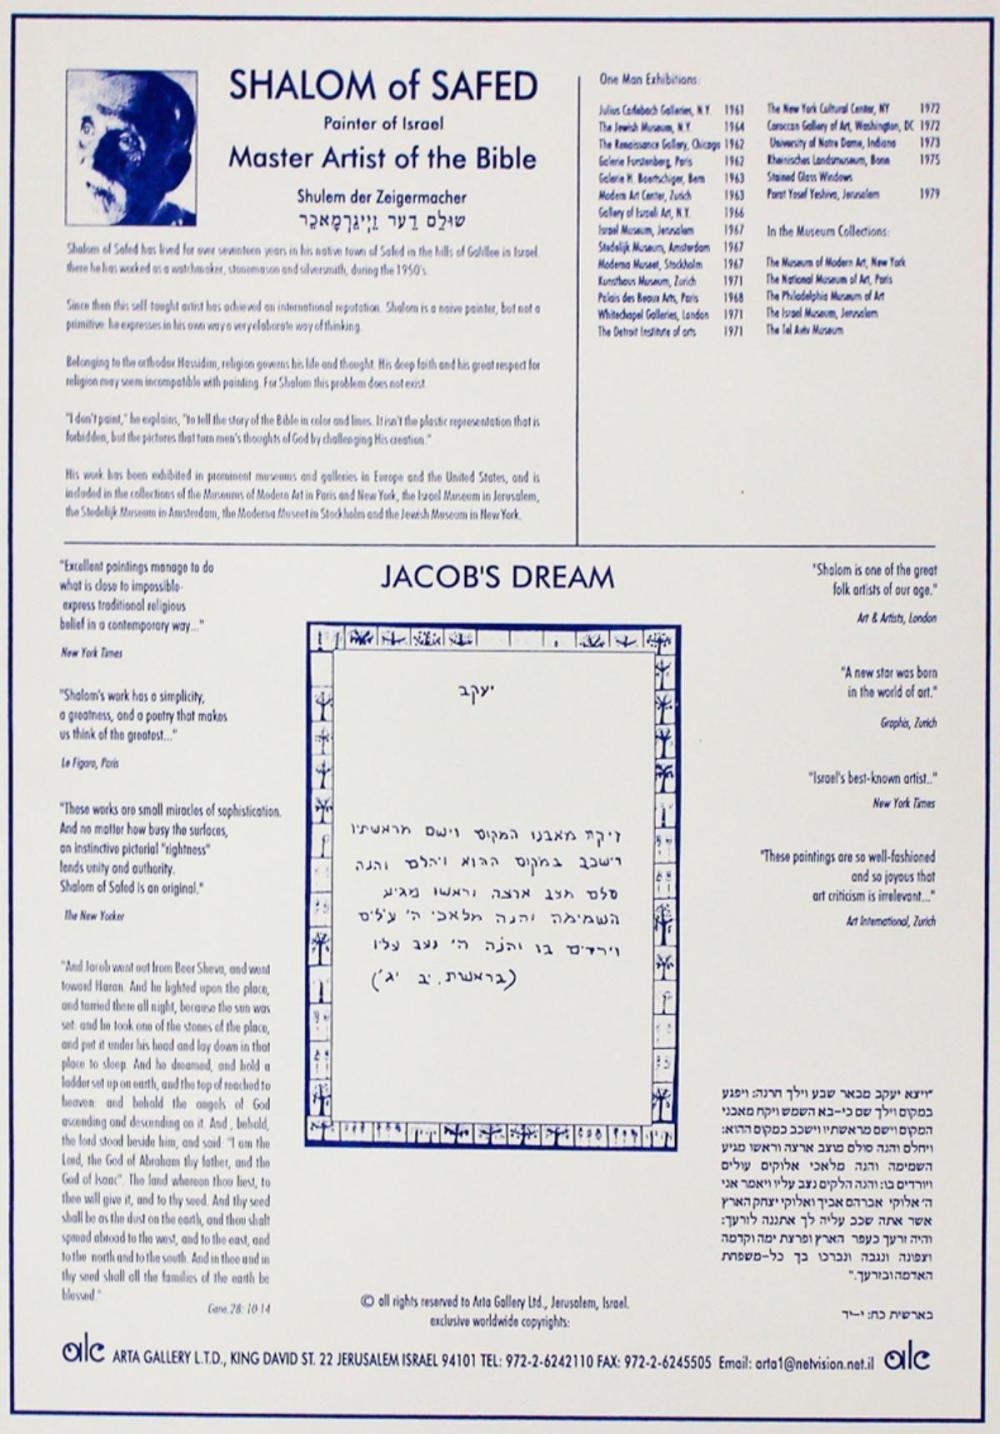 SHALOM of SAFED
Painter of Israel
Master Artist of the Bible
Shulem der Zeigermacher
שולם דער זייגרמאכר
Shalom of Safed has lived for over seventeen years in his native town of Safed in the hills of Galilee in Israel.
there he has worked as a watchmaker, stonemason and silversmith, during the 1950's.
Since then this self tought artist has achieved an international reputation. Shalom is a naive painter, but not a
primitive: he expresses in his own way a very elaborate way of thinking.
Belonging to the orthodox Hassidim, religion governs his life and thought. His deep faith and his great respect for
religion may seem incompatible with painting. For Shalom this problem does not exist.
"I don't paint," he explains, "to tell the story of the Bible in color and lines. It isn't the plastic representation that is
forbidden, but the pictures that turn men's thoughts of God by challenging His creation."
His work has been exhibited in prominent museums and galleries in Europe and the United States, and is
included in the collections of the Museums of Modern Art in Paris and New York, the Israel Museum in Jerusalem,
the Stedelijk Museum in Amsterdam, the Moderna Museet in Stockholm and the Jewish Museum in New York.
One Man Exhibitions:
Julius Carlebach Galleries, N.Y. 1961
The Jewish Museum, N.Y. 1964
The Renaissance Gallery, Chicago 1962
Galerie Furstenberg, Paris 1962
Galerie H. Baertschiger, Bern 1963
Modern Art Center, Zurich 1963
Gallery of Israeli Art, N.Y. 1966
Israel Museum, Jerusalem 1967
Stedelijk Museum, Amsterdam 1967
Moderna Museet, Stockholm 1967
Kunsthaus Museum, Zurich 1971
Palais des Beaux Arts, Paris 1968
Whitechapel Galleries, London 1971
The Detroit Institute of arts 1971
The New York Cultural Center, NY 1972
Corocran Gallery of Art, Washington, DC 1972
University of Notre Dame, Indiana 1973
Rheinisches Landsmuseum, Bonn 1975
Stained Glass Windows
Porat Yosef Yeshiva, Jerusalem 1979
In the Museum Collections:
The Museum of Modern Art, New York
The National Museum of Art, Paris
The Philadelphia Museum of Art
The Israel Museum, Jerusalem
The Tel Aviv Museum
"Excellent paintings manage to do
what is close to impossible-
express traditional religious
belief in a contemporary way..."
New York Times
"Shalom's work has a simplicity,
a greatness, and a poetry that makes
us think of the greatest..."
Le Figaro, Paris
"These works are small miracles of sophistication.
And no matter how busy the surfaces,
an instinctive pictorial "rightness"
lends unity and authority.
Shalom of Safed is an original."
The New Yorker
"And Jacob went out from Beer Sheva, and went
toward Haran. And he lighted upon the place,
and tarried there all night, because the sun was
set: and he took one of the stones of the place,
and put it under his head and lay down in that
place to sleep. And he dreamed, and hold a
ladder set up on earth, and the top of reached to
heaven: and behold the angels of God
ascending and descending on it. And , behold,
the lord stood beside him, and said: "I am the
Lord, the God of Abraham thy father, and the
God of Isaac". The land whereon thou liest, to
thee will give it, and to thy seed. And thy seed
shall be as the dust on the earth, and thou shalt
spread abroad to the west, and to the east, and
to the north and to the south. And in thee and in
thy seed shall all the families of the earth be
blessed."
Gene. 28: 10-14
JACOB'S DREAM
יעקב
ויקח מאבנו המקום וישם מראשתיו
וישכב במקום ההוא ויהלם והנה
סלם מצב ארצה וראשו מגיע
השמימה והנה מלאכי ה' עלים
וירדים בו והנה ה' נצב עליו
(בראשת, יב יג')
"Shalom is one of the great
folk artists of our age."
Art & Artists, London
"A new star was born
in the world of art."
Graphis, Zurich
"Israel's best-known artist.."
New York Times
"These paintings are so well-fashioned
and so joyous that
art criticism is irrelevant..."
Art International, Zurich
"ויצא יעקב מבאר שבע וילך חרנה: ויפגע
במקום וילך שם כי-בא השמש ויקח מאבני
המקום וישם מראשתיו וישכב במקום ההוא:
ויחלם והנה סולם מוצב ארצה וראשו מגיע
השמימה והנה מלאכי אלוקים עולים
ויורדים בו: והנה הלקים נצב עליו ויאמר אני
ה' אלוקי אברהם אביך ואלוקי יצחק הארץ
אשר אתה שכב עליה לך אתננה לזרעך:
והיה זרעך כעפר הארץ ופרצת ימה וקדמה
וצפונה ונגבה ונברכו בך כל-משפחת
האדמה ובזרעך."
בארשית כח: י-יד
© all rights reserved to Arta Gallery Ltd., Jerusalem, Israel.
exclusive worldwide copyrights:
alc ARTA GALLERY L.T.D., KING DAVID ST. 22 JERUSALEM ISRAEL 94101 TEL: 972-2-6242110 FAX: 972-2-6245505 Email: arta1@netvision.net.il alc